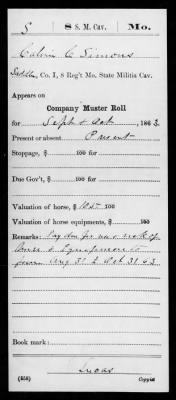 S 8 S. M. Cav. Mo.
Calvin C. Simons
Co. I, 8 Reg't Mo. State Militia Cav.
Appears on
Company Muster Roll
for Sept & Oct, 1863.
Present or absent Present
Stoppage, $ 100 for
Due Gov't, $ 100 for
Valuation of horse, $ 100
Valuation of horse equipments, $ 100
Remarks: Pay due for use & risk of
Horse & Equipments
from Aug 31 to Oct 31 63
Book mark:
Lucas
(858) Copyist